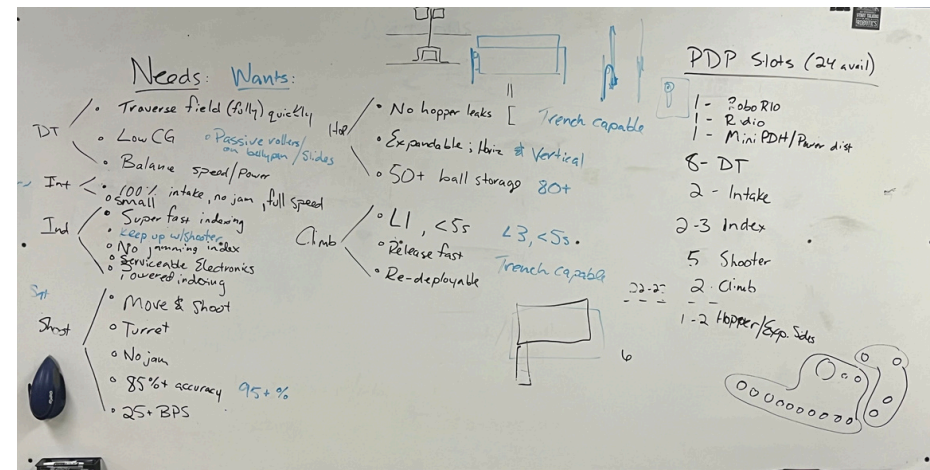 Needs: Wants:
DT
• Traverse field (fully) quickly
• Low CG
• Passive rollers/
on bellypan/Slides
• Balance speed/Power
Int
• 100% intake, no jam, full speed
• small
Ind
• Super fast indexing
• keep up w/shooter
• No jamming index
• Serviceable Electronics
• Powered indexing
• Move & Shoot
• Turret
• No jam
• 85%+ accuracy 95+%
• 25+ BPS
• No hopper leaks [ Trench capable
• Expandable; Horiz & Vertical
• 50+ ball storage 80+
Climb
• L1, <5s L3, <5s
• Release fast
• Re-deployable
Trench capable
6
PDP Slots (24 avail)
1 - RoboRIO
1 - Radio
1 - Mini PDH/Power dist
8 - DT
2 - Intake
2-3 Index
5 Shooter
2 - Climb
1-2 Hopper/Exp. Sides